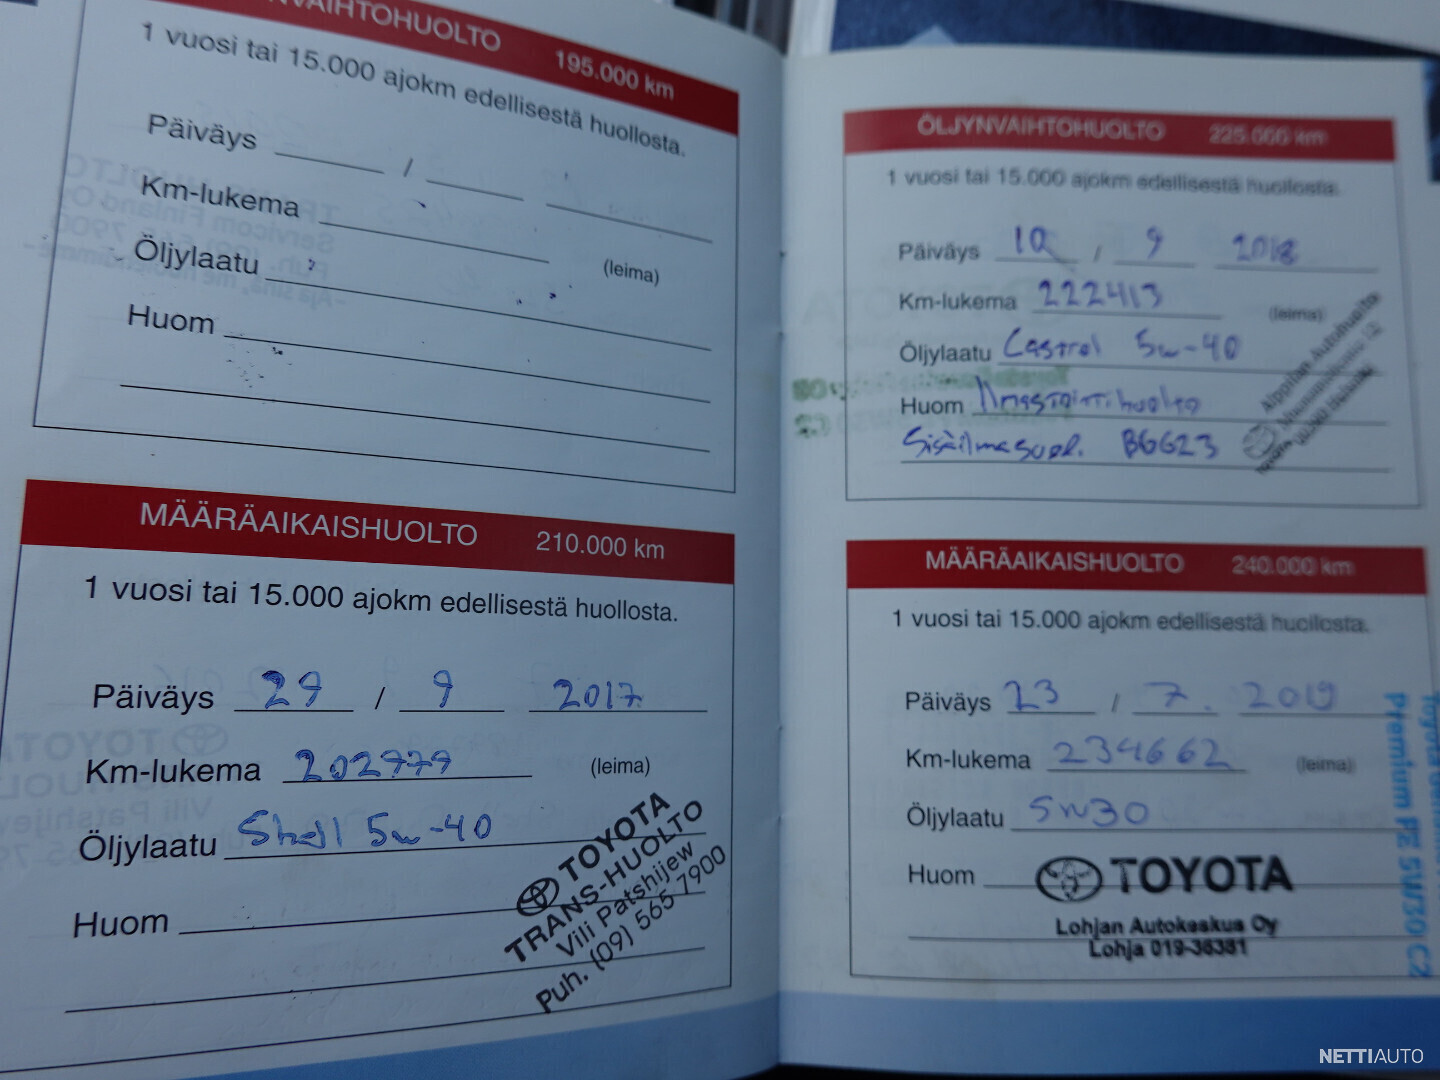 ÖLJYNVAIHTOHUOLTO 195.000 km
1 vuosi tai 15.000 ajokm edellisestä huollosta.
Päiväys /
Km-lukema
(leima)
Öljylaatu
Huom
MÄÄRÄAIKAISHUOLTO 210.000 km
1 vuosi tai 15.000 ajokm edellisestä huollosta.
Päiväys 29 / 9 2017
Km-lukema 202779
(leima)
Öljylaatu Shell 5w-40
Huom
TOYOTA
TRANS-HUOLTO
Vili Patshijew
Puh. (09) 565 7900
ÖLJYNVAIHTOHUOLTO 225.000 km
1 vuosi tai 15.000 ajokm edellisestä huollosta.
Päiväys 10 / 9 2018
Km-lukema 222413
(leima)
Öljylaatu Castrol 5w-40
Huom Ilmastointihuolto
Sisäilmasuod. BGG23
MÄÄRÄAIKAISHUOLTO 240.000 km
1 vuosi tai 15.000 ajokm edellisestä huollosta.
Päiväys 23 / 7. 2019
Km-lukema 234662
(leima)
Öljylaatu 5W30
Huom
TOYOTA
Lohjan Autokeskus Oy
Lohja 019-36381
Premium FE 5W30 C2
NETTIAUTO